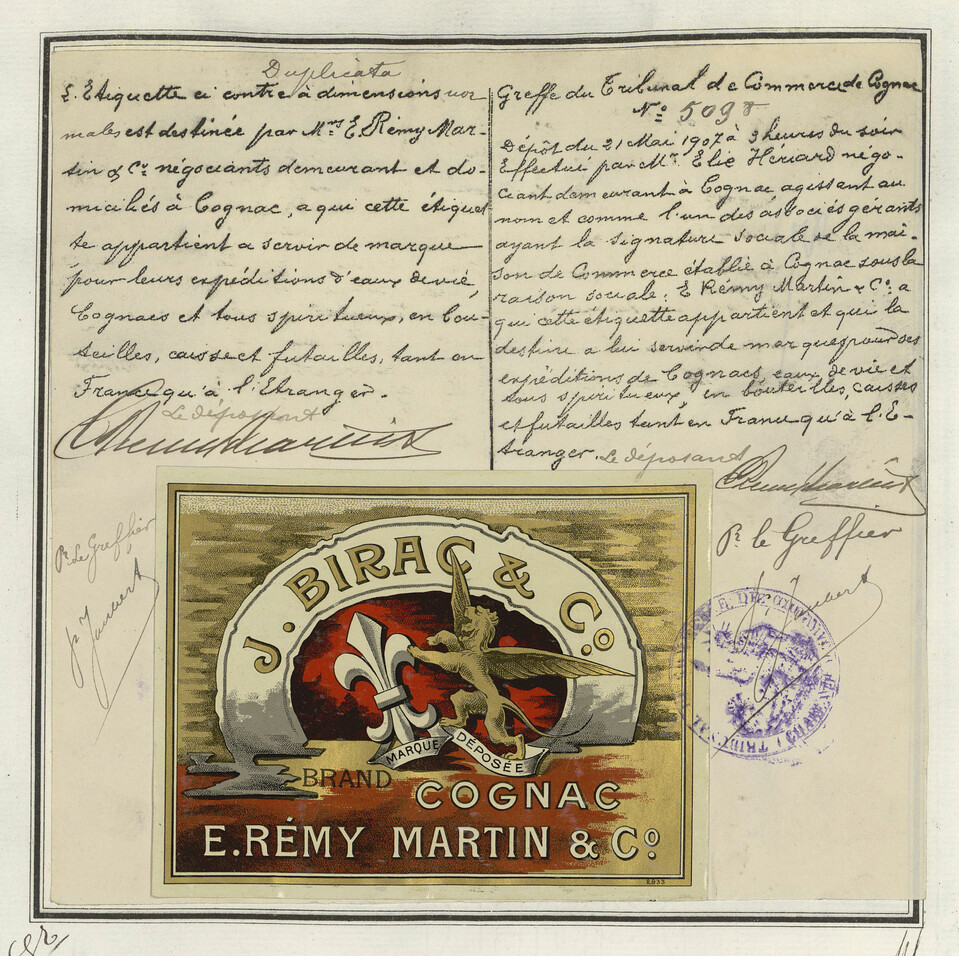 Duplicata
L'Etiquette ci contre à dimensions nor
males est destinée par Mrs E. Rémy Mar-
tin & Cie négociants demeurant et do-
miciliés à Cognac, a qui cette étiquet
te appartient a servir de marque
pour leurs expéditions d'eaux de vie,
Cognacs et tous spiritueux, en bou-
teilles, caisse et futailles, tant en
France qu'à l'Etranger.
Le déposant
E Remy Martin & Co
Pr Le Greffier
Greffe du Tribunal de Commerce de Cognac
No 5098
Dépôt du 21 Mai 1907 à 3 heures du soir
Effectué par Mr. Elie Hériard négo-
ciant demeurant à Cognac agissant au
nom et comme l'un des associés gérants
ayant la signature sociale de la mai-
son de Commerce établie à Cognac sous la
raison sociale: E Rémy Martin & Co. a
qui cette étiquette appartient et qui la
destine a lui servir de marque pour ses
expéditions de Cognacs, eaux de vie et
tous spiritueux, en bouteilles, caisses
et futailles tant en France qu'à l'E-
tranger. Le déposant
E Remy Martin & Co
Pr le Greffier
J. BIRAC & Co.
MARQUE DÉPOSÉE
BRAND
COGNAC
E. RÉMY MARTIN & Co.